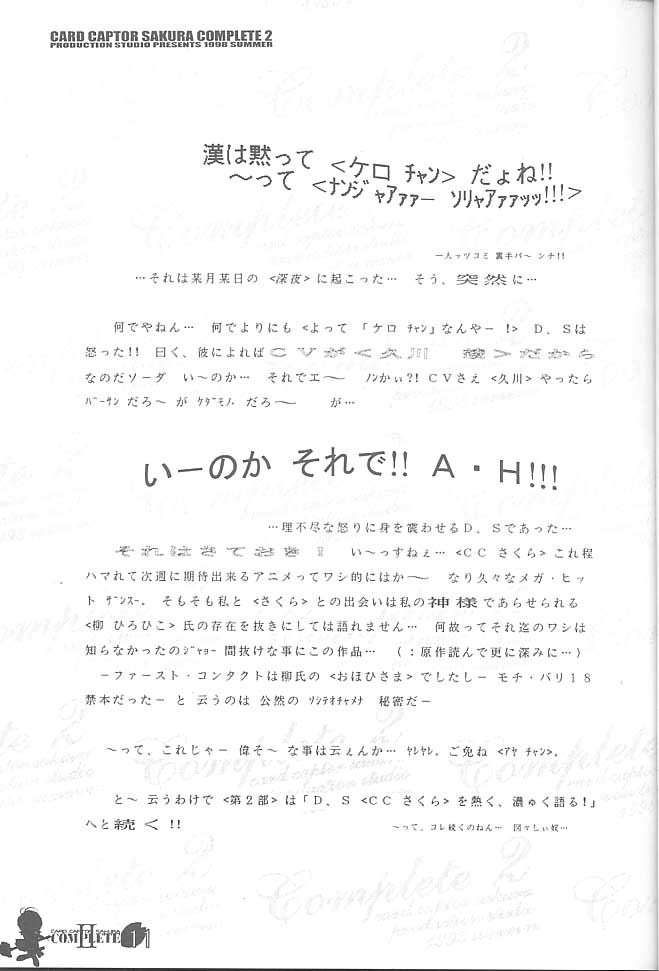 CARD CAPTOR SAKURA COMPLETE 2
PRODUCTION STUDIO PRESENTS 1998 SUMMER
漢は黙って <ケロ チャン> だょね!!
〜って <ナンジャアァァー ソリャアァァッッ!!!>
一人ッツコミ 裏手バ〜 ンチ!!
…それは某月某日の <深夜> に起こった… そう、突然に…
何でやねん… 何でよりにも <よって 「ケロ チャン」なんやー !> D、Sは
怒った!! 曰く、彼によればCVが<久川 綾>だから
なのだソーダ い〜のか… それでエ〜 ノンかぃ?! CVさえ <久川> やったら
バーサン だろ〜 が ケダモノム だろ〜 が…
いーのか それで!! A・H!!!
…理不尽な怒りに身を震わせるD、Sであった…
それはさておき! い〜っすねぇ… <CC さくら> これ程
ハマれて次週に期待出来るアニメってワシ的にはか〜 なり久々なメガ・ヒッ
ト ザンスー、そもそも私と <さくら> との出会いは私の神様であらせられる
<柳 ひろひこ> 氏の存在を抜きにしては語れません… 何故ってそれ迄のワシは
知らなかったのジャョー 間抜けな事にこの作品… (:原作読んで更に深みに…)
−ファースト・コンタクトは柳氏の <おほひさま> でしたしー モチ・バリ18
禁本だったー と 云うのは 公然の ソシテオチャメナ 秘密だ−
〜って、これじゃー 偉そ〜 な事は云ぇんか… ヤレヤレ、ご免ね <アヤ チャン>、
と〜 云うわけで <第2部> は「D、S <CC さくら> を熱く、濃ゅく語る!」
へと続く!!
〜って、コレ続くのねん… 図々しぃ奴…
CARD CAPTOR SAKURA
COMPLETE II 11